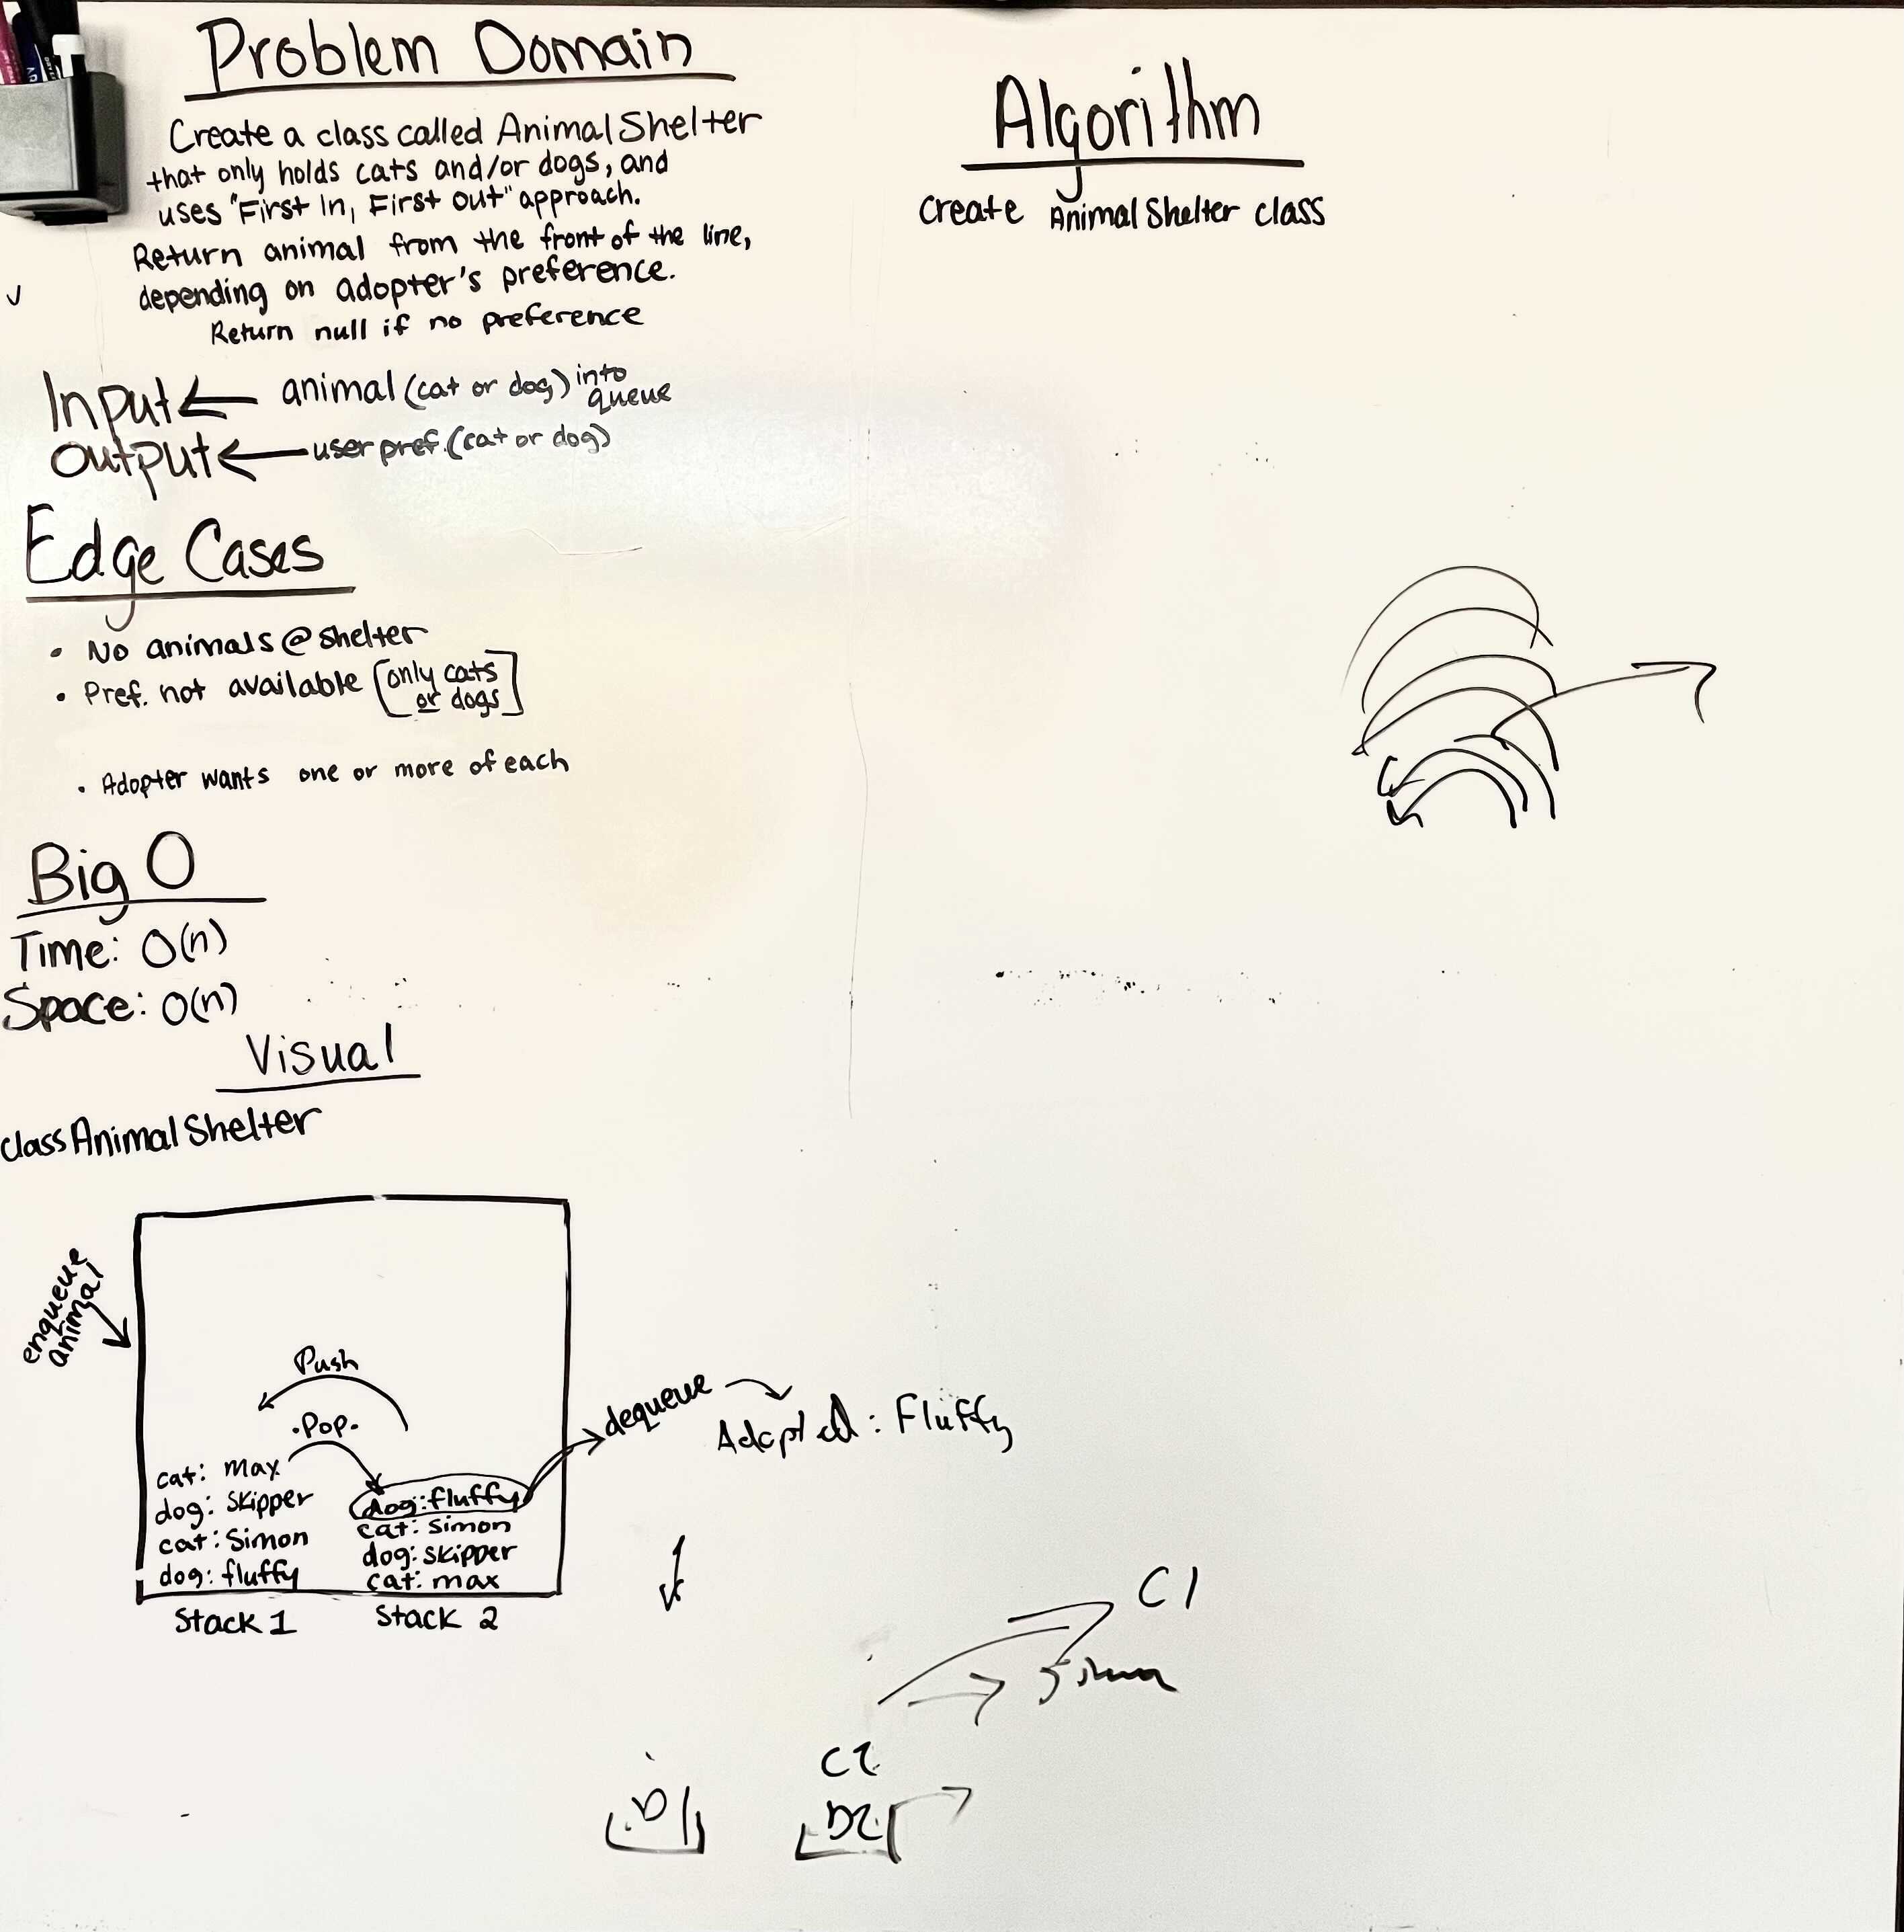 Problem Domain
Create a class called AnimalShelter
that only holds cats and/or dogs, and
uses "First In, First out" approach.
Return animal from the front of the line,
depending on adopter's preference.
Return null if no preference
Input ← animal (cat or dog) into queue
output ← user pref. (cat or dog)
Edge Cases
• No animals @ shelter
• Pref. not available [only cats
or dogs]
• Adopter wants one or more of each
Big O
Time: O(n)
Space: O(n)
Visual
class AnimalShelter
enqueue
animal
Push
.Pop.
cat: max
dog: skipper
cat: Simon
dog: fluffy
Stack 1
dog: fluffy
cat: simon
dog: skipper
cat: max
Stack 2
dequeue
Adopted: Fluffy
C1
C2
D2
Algorithm
create AnimalShelter class